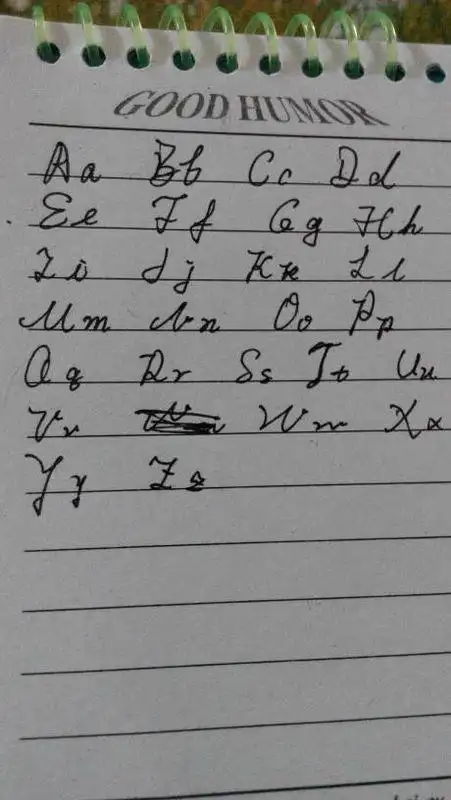 GOOD HUMOR
Aa Bb Cc Dd
Ee Ff Gg Hh
Ii Jj Kk Ll
Mm Nn Oo Pp
Qq Rr Ss Tt Uu
Vv Ww Xx
Yy Zz